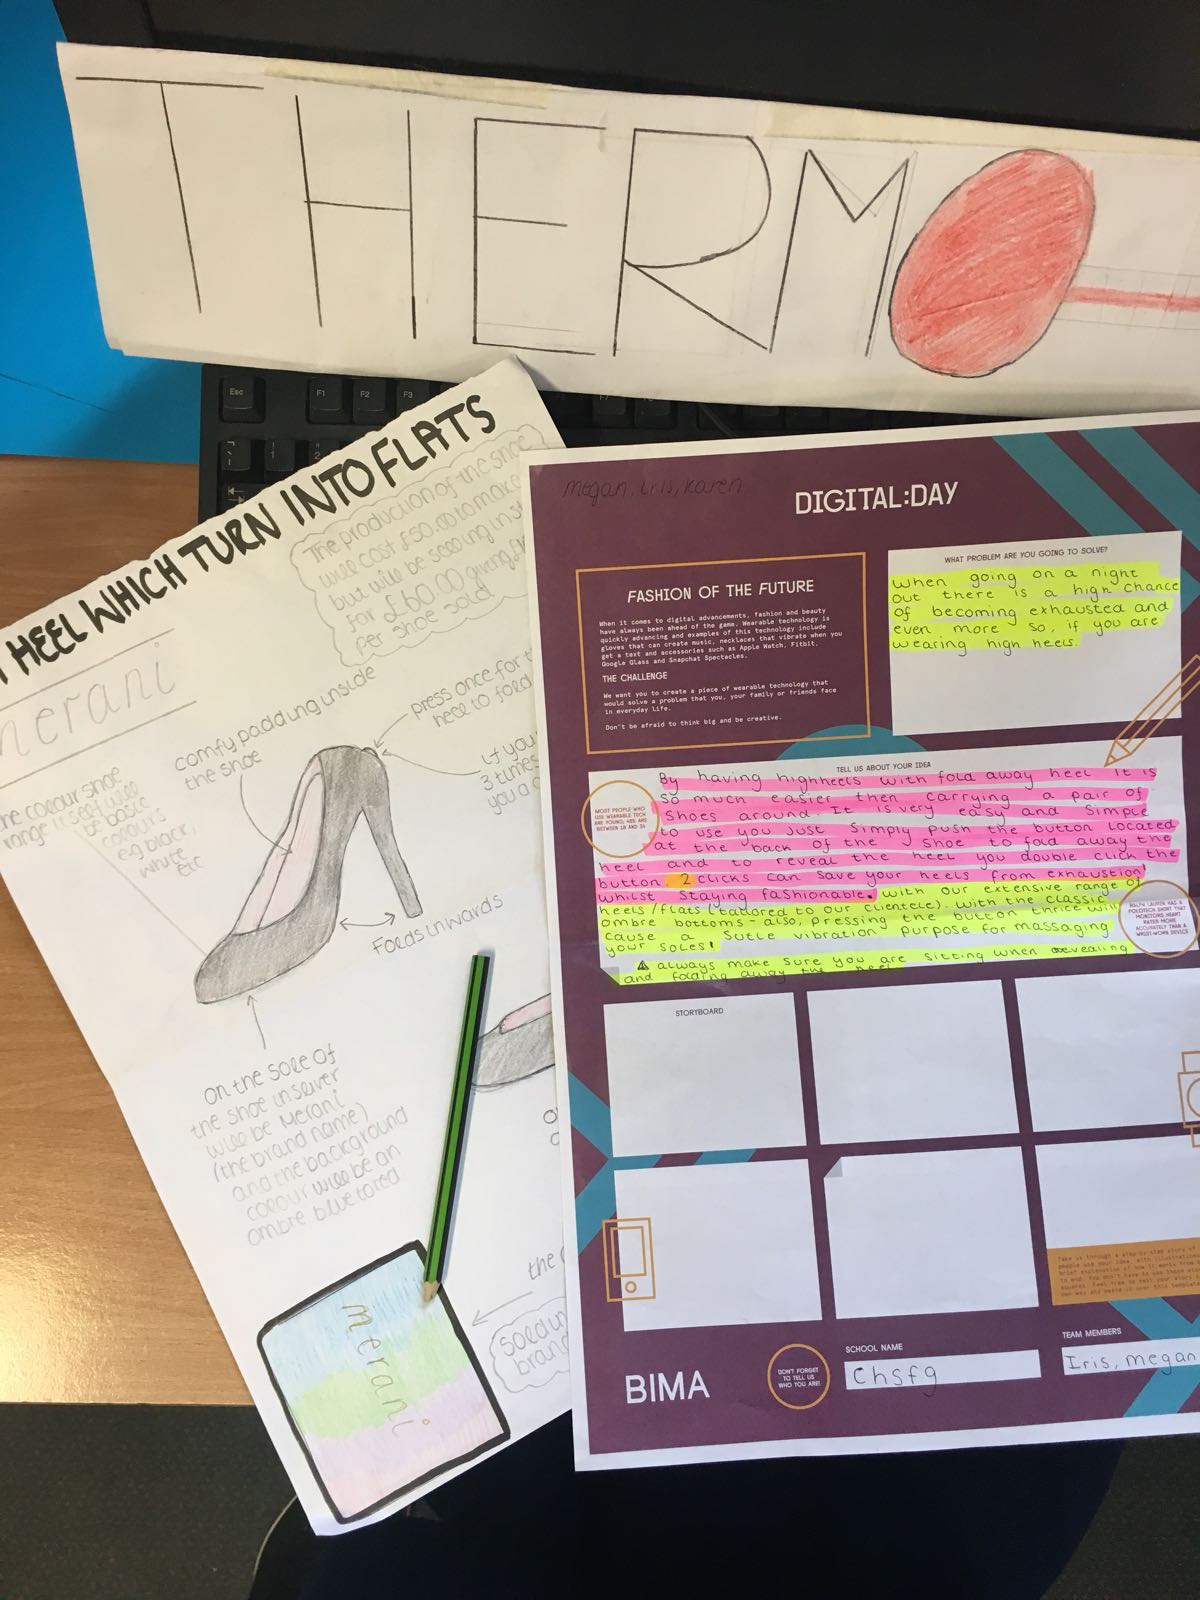 THERMO
Esc F1 F2 F3
HEEL WHICH TURN INTO FLATS
merani
The production of the shoe
will cost £50.00 to make
but will be
for £600.00 giving
per shoe sold
comfy padding inside
the shoe
press once for
heel to fold
If you
3 times
you a
the colour shoe
range
be basic
colours
e.g black,
white
etc
Folds inwards
On the sole of
the shoe in silver
will be Merani
(the brand name)
and the background
colour will be an
ombre blue to red
merani
the
brand
megan, iris, karen
DIGITAL:DAY
FASHION OF THE FUTURE
When it comes to digital advancements, fashion and beauty
have always been ahead of the game. Wearable technology is
quickly advancing and examples of this technology include
gloves that can create music, necklaces that vibrate when you
get a text and accessories such as Apple Watch, Fitbit,
Google Glass and Snapchat Spectacles.
THE CHALLENGE
We want you to create a piece of wearable technology that
would solve a problem that you, your family or friends face
in everyday life.
Don't be afraid to think big and be creative.
WHAT PROBLEM ARE YOU GOING TO SOLVE?
When going on a night
out there is a high chance
of becoming exhausted and
even more so, if you are
wearing high heels.
TELL US ABOUT YOUR IDEA
By having highheels with fold away heel it is
so much easier then carrying a pair of
shoes around. It is very easy and simple
to use you just simply push the button located
at the back of the shoe to fold away the
heel and to reveal the heel you double click the
button 2 clicks can save your heels from exhaustion
whilst staying fashionable. with our extensive range of
heels/flats (tailored to our clientele). with the classic
ombre bottoms - also, pressing the button thrice will
cause a sutle vibration purpose for massaging
your soles!
⚠ always make sure you are sitting when revealing
and folding away the heel
MOST PEOPLE WHO
USE WEARABLE TECH
ARE YOUNG; 48% ARE
BETWEEN 18 AND 34
RALPH LAUREN HAS A
POLOTECH SHIRT THAT
MONITORS HEART
RATES MORE
ACCURATELY THAN A
WRIST-WORN DEVICE
STORYBOARD
BIMA
DON'T FORGET
TO TELL US
WHO YOU ARE!
SCHOOL NAME
Chsfg
TEAM MEMBERS
Iris, megan